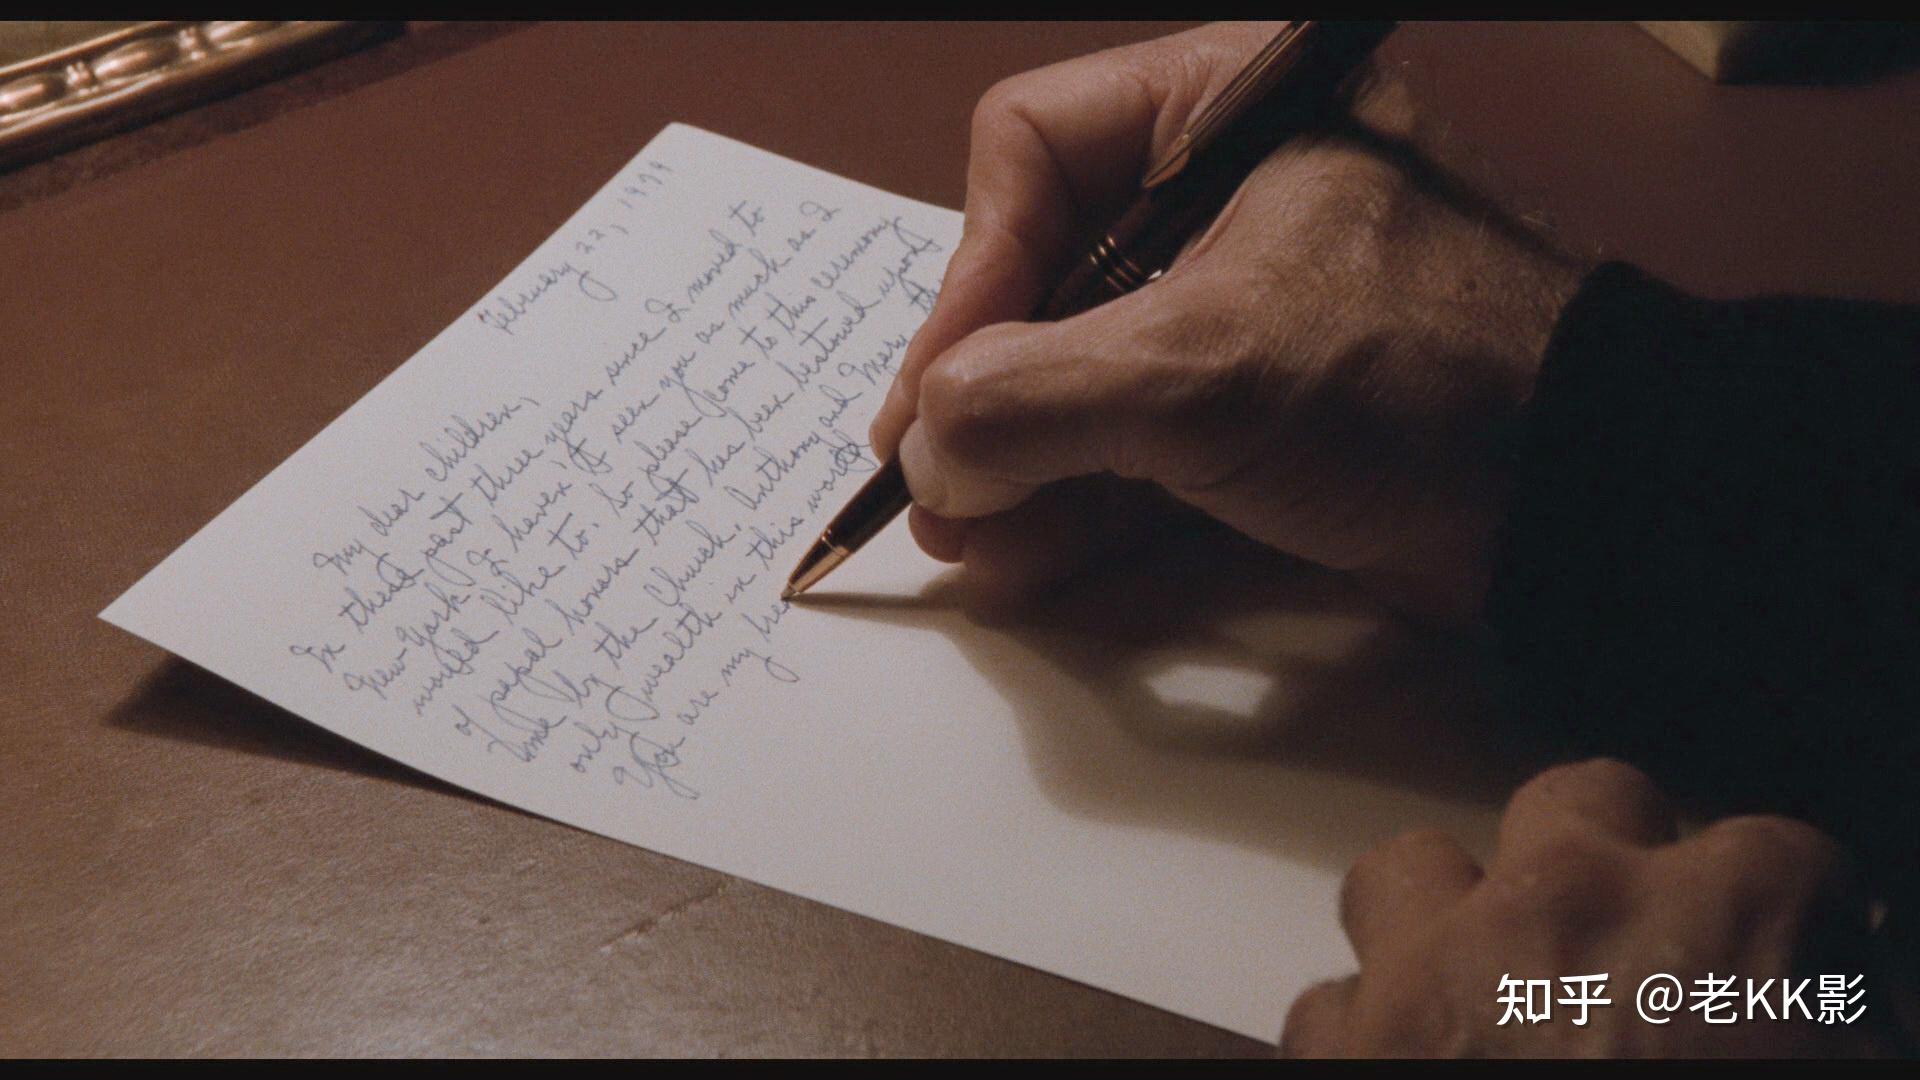 February 22, 1979
My dear children,
In these past three years since I moved to
New York I haven't seen you as much as I
would like to. So please come to this ceremony
of papal honors that has been bestowed upon
time by the Church. Anthony and Mary the
only wealth in this world
You are my hea
知乎 @老KK影